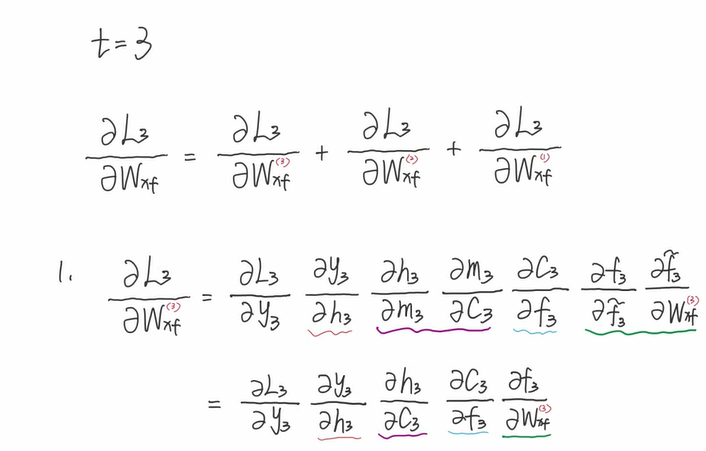 t=3
∂L₃/∂W_xf = ∂L₃/∂W_xf⁽³⁾ + ∂L₃/∂W_xf⁽²⁾ + ∂L₃/∂W_xf⁽¹⁾
1. ∂L₃/∂W_xf⁽³⁾ = ∂L₃/∂y₃ ∂y₃/∂h₃ ∂h₃/∂m₃ ∂m₃/∂C₃ ∂C₃/∂f₃ ∂f₃/∂f̃₃ ∂f̃₃/∂W_xf⁽³⁾
= ∂L₃/∂y₃ ∂y₃/∂h₃ ∂h₃/∂C₃ ∂C₃/∂f₃ ∂f₃/∂W_xf⁽³⁾